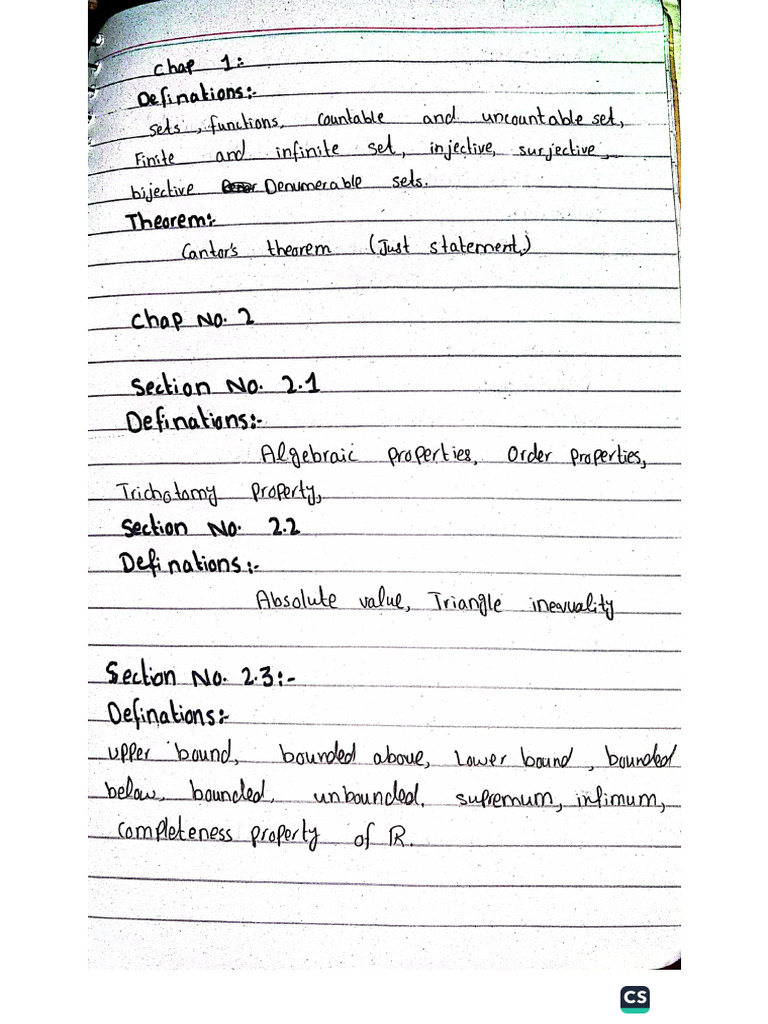 Chap 1:
Definations:-
sets, functions, countable and uncountable set,
Finite and infinite set, injective, surjective,
bijective Denumerable sets.
Theorem:-
Cantor's theorem (Just statement,)
Chap No. 2
Section No. 2.1
Definations:-
Algebraic properties, Order properties,
Trichotomy property,
Section No. 2.2
Definations:-
Absolute value, Triangle inequality
Section No. 2.3:-
Definations:-
upper bound, bounded above, Lower bound, bounded
below, bounded, unbounded, supremum, infimum,
completeness property of ℝ.
CS